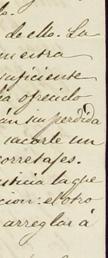 de ello. La
muestra
suficiente
ha ofrecido
an su perdida
sacarle un
corretajes.
usticia la que
cion: el otro
arreglar á